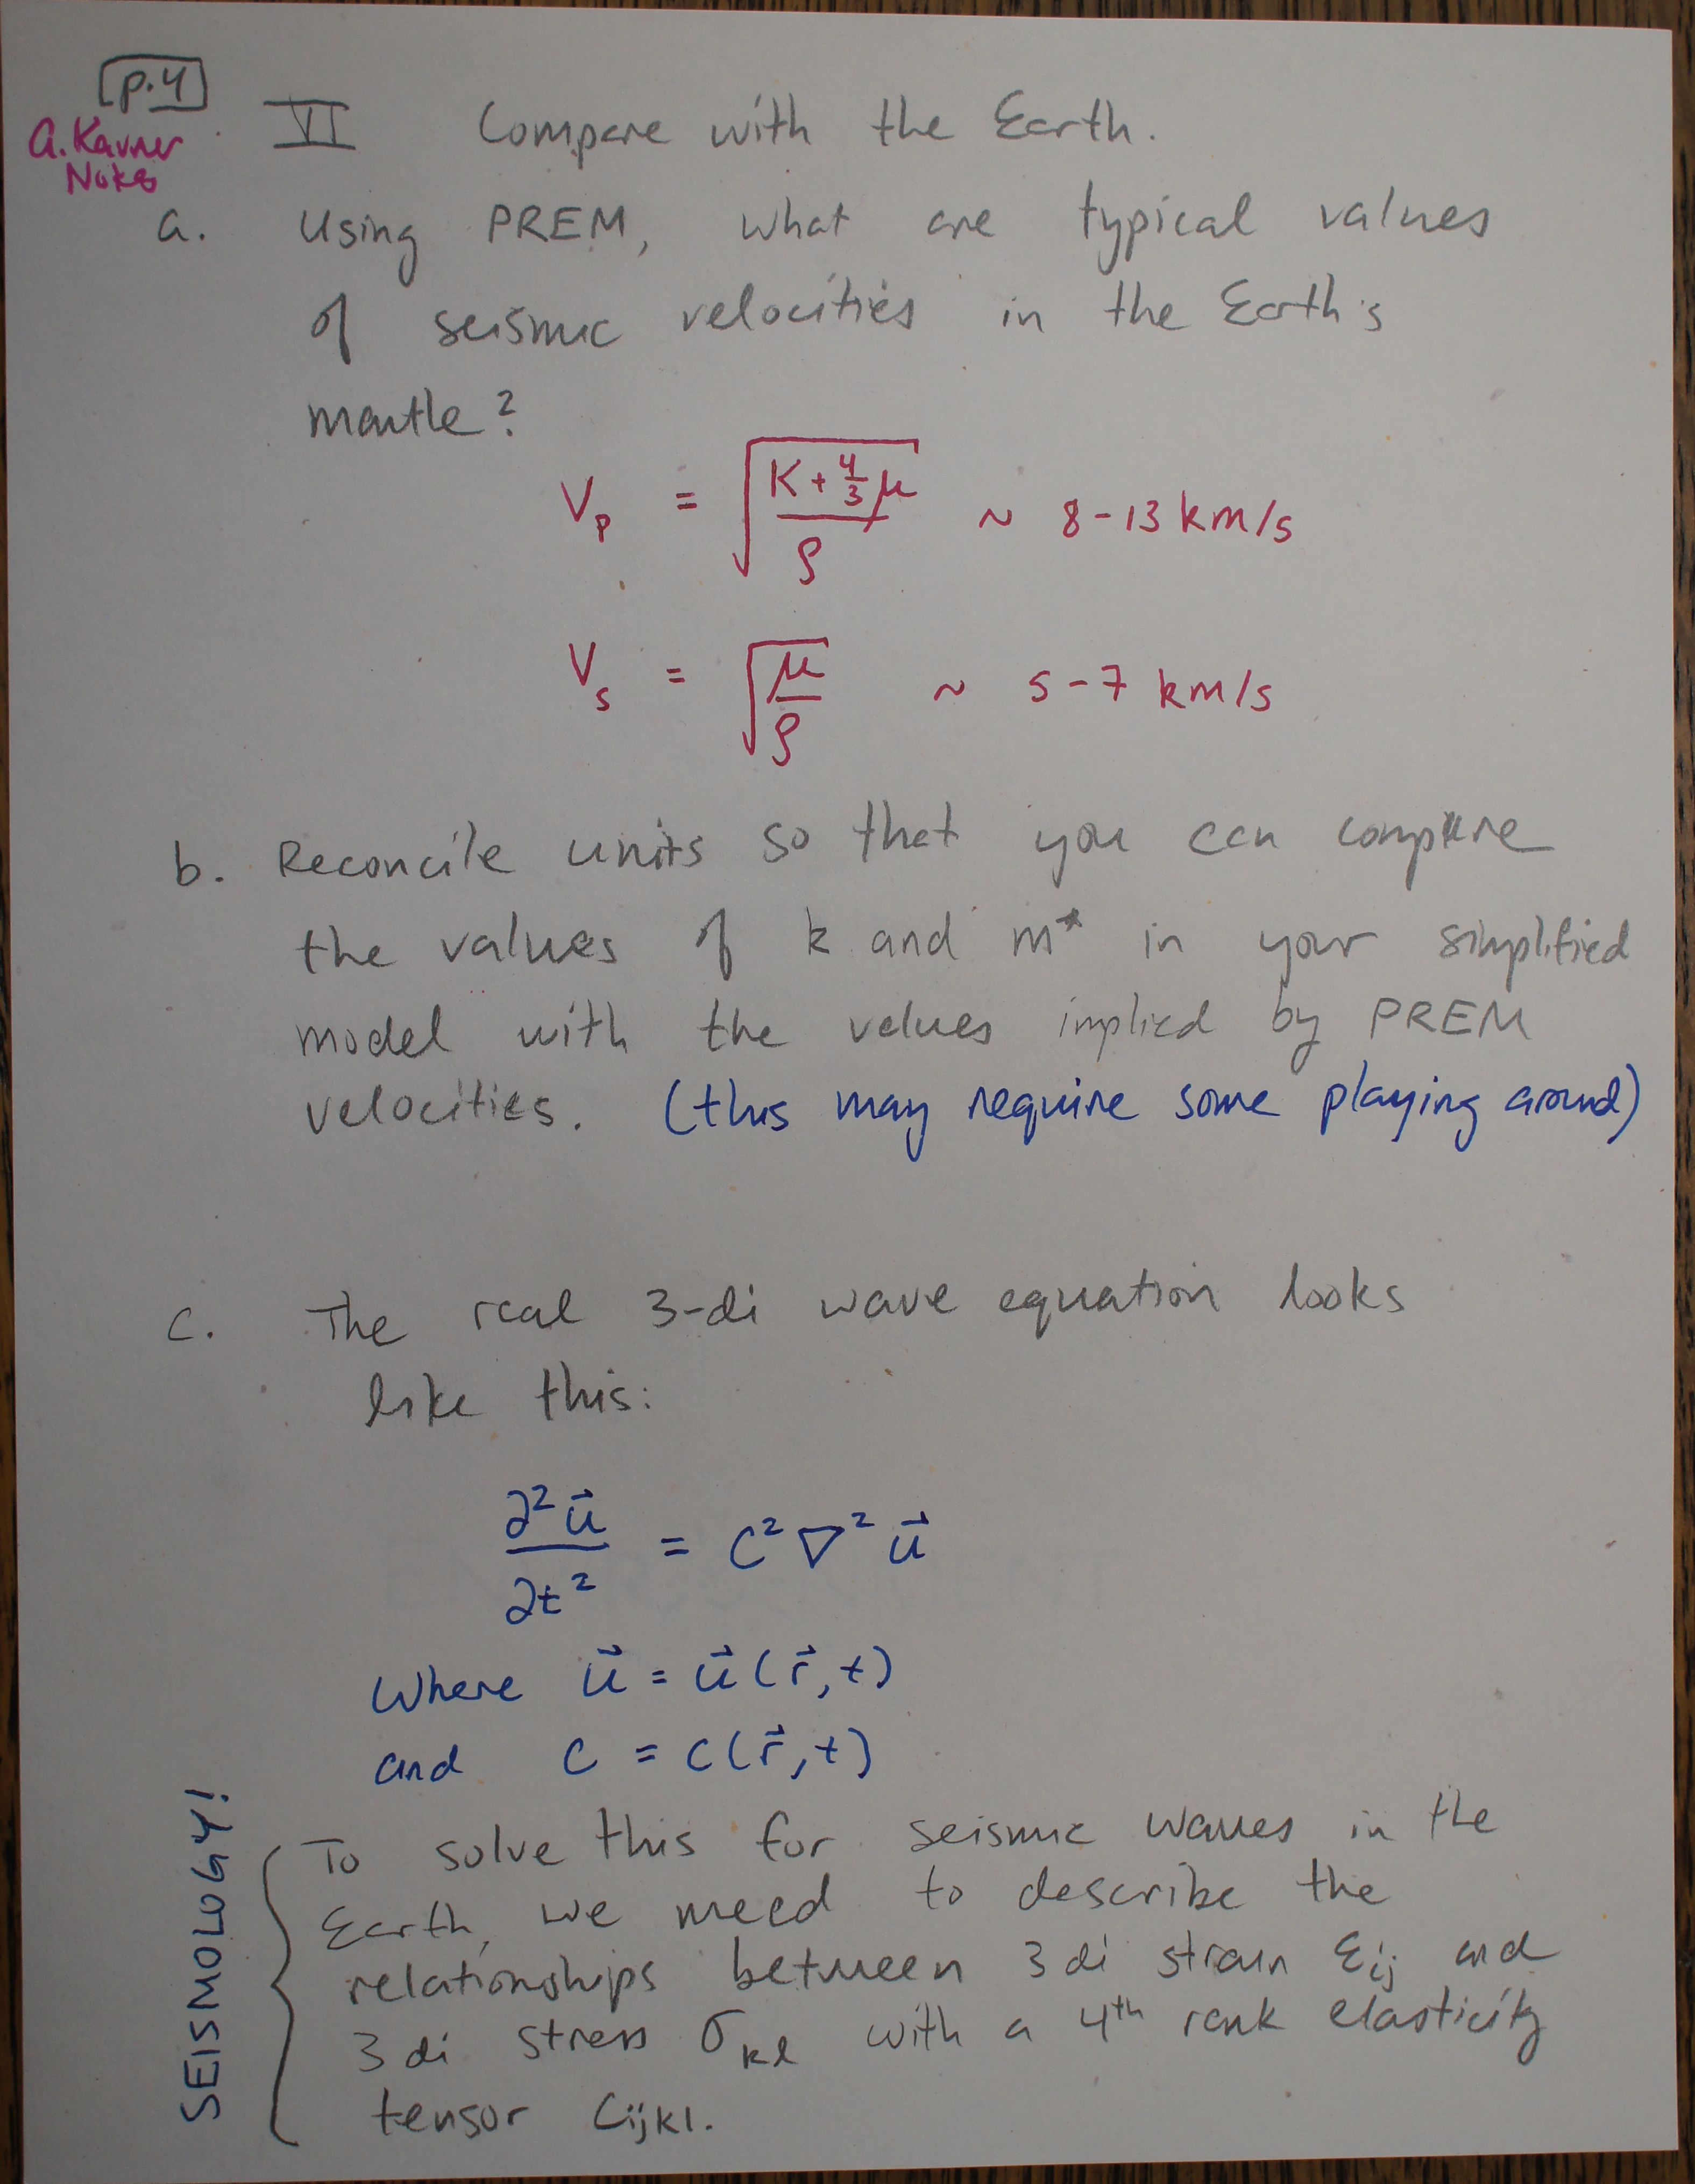 p.4
A. Kavner
Notes
VI Compare with the Earth.
a. Using PREM, what are typical values
of seismic velocities in the Earth's
mantle?
V_p = √((K + 4/3 μ)/ρ) ~ 8-13 km/s
V_s = √(μ/ρ) ~ 5-7 km/s
b. Reconcile units so that you can compare
the values of k and m* in your simplified
model with the values implied by PREM
velocities. (this may require some playing around)
c. The real 3-di wave equation looks
like this:
∂²u⃗/∂t² = C² ∇² u⃗
Where u⃗ = u⃗(r⃗,t)
and C = C(r⃗,t)
SEISMOLOGY!
To solve this for seismic waves in the
Earth, we need to describe the
relationships between 3 di strain ε_ij and
3 di stress σ_kl with a 4th rank elasticity
tensor Cijkl.